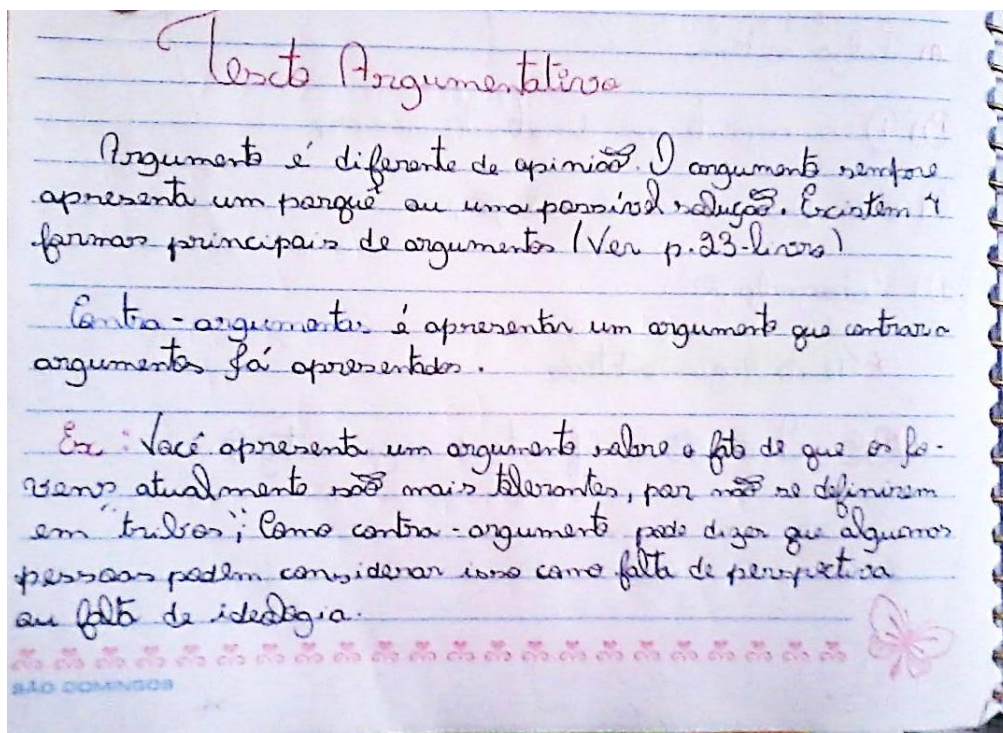 Texto Argumentativo
Argumento é diferente de opinião. O argumento sempre
apresenta um porquê ou uma possível solução. Existem 4
formas principais de argumentos (Ver p.23-livro)
Contra-argumentos é apresentar um argumento que contrarie
argumentos já apresentados.
Ex: Você apresenta um argumento sobre o fato de que os jo-
vens atualmente são mais tolerantes, por não se definirem
em "tribos"; Como contra-argumento pode dizer que algumas
pessoas podem considerar isso como falta de perspectiva
ou falta de ideologia.
SÃO DOMINGOS